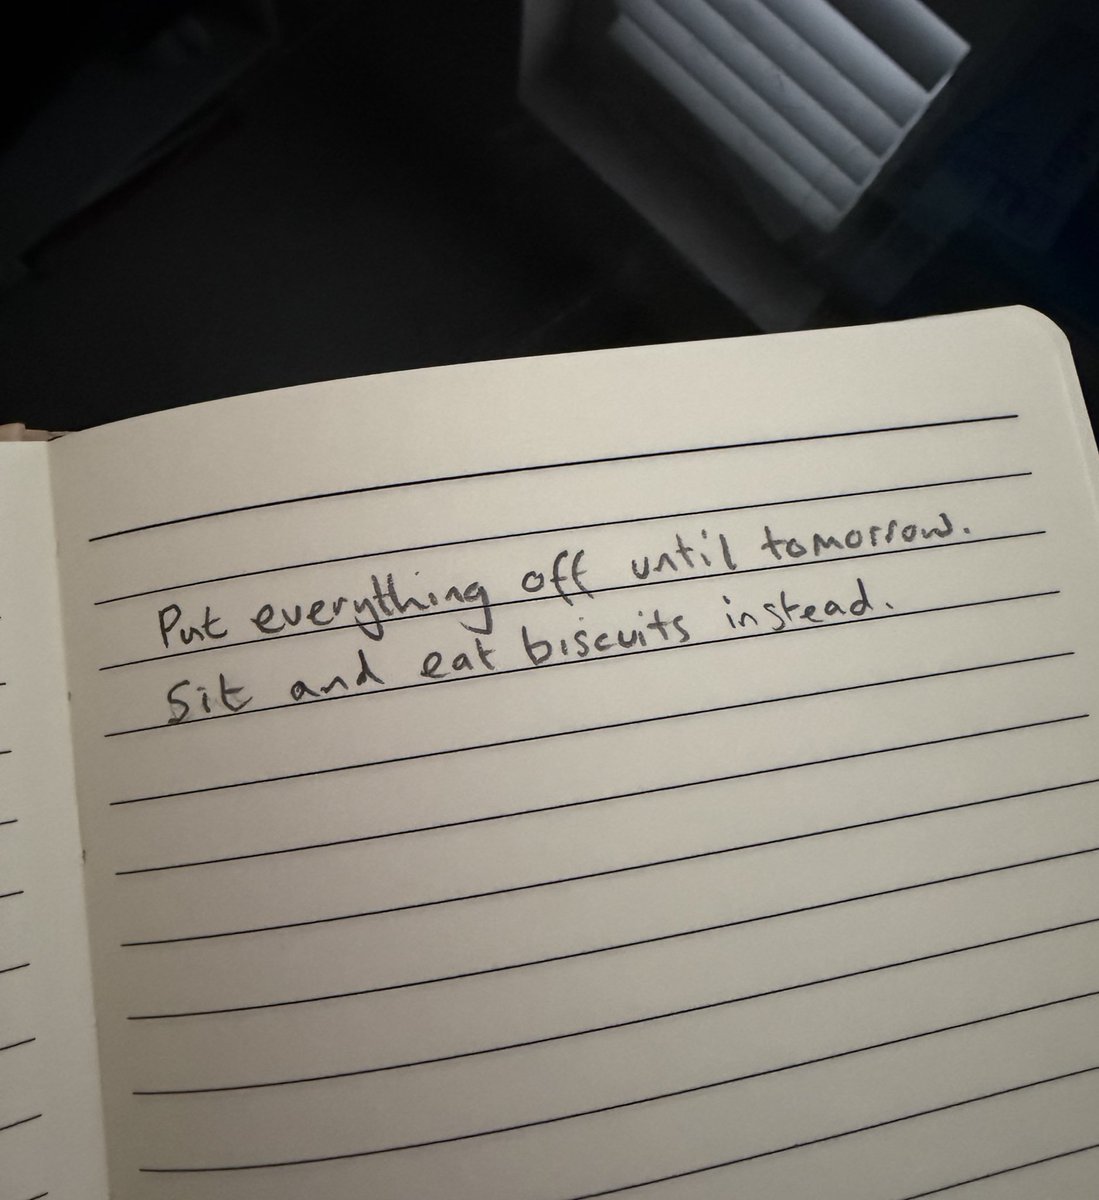 Put everything off until tomorrow.
Sit and eat biscuits instead.